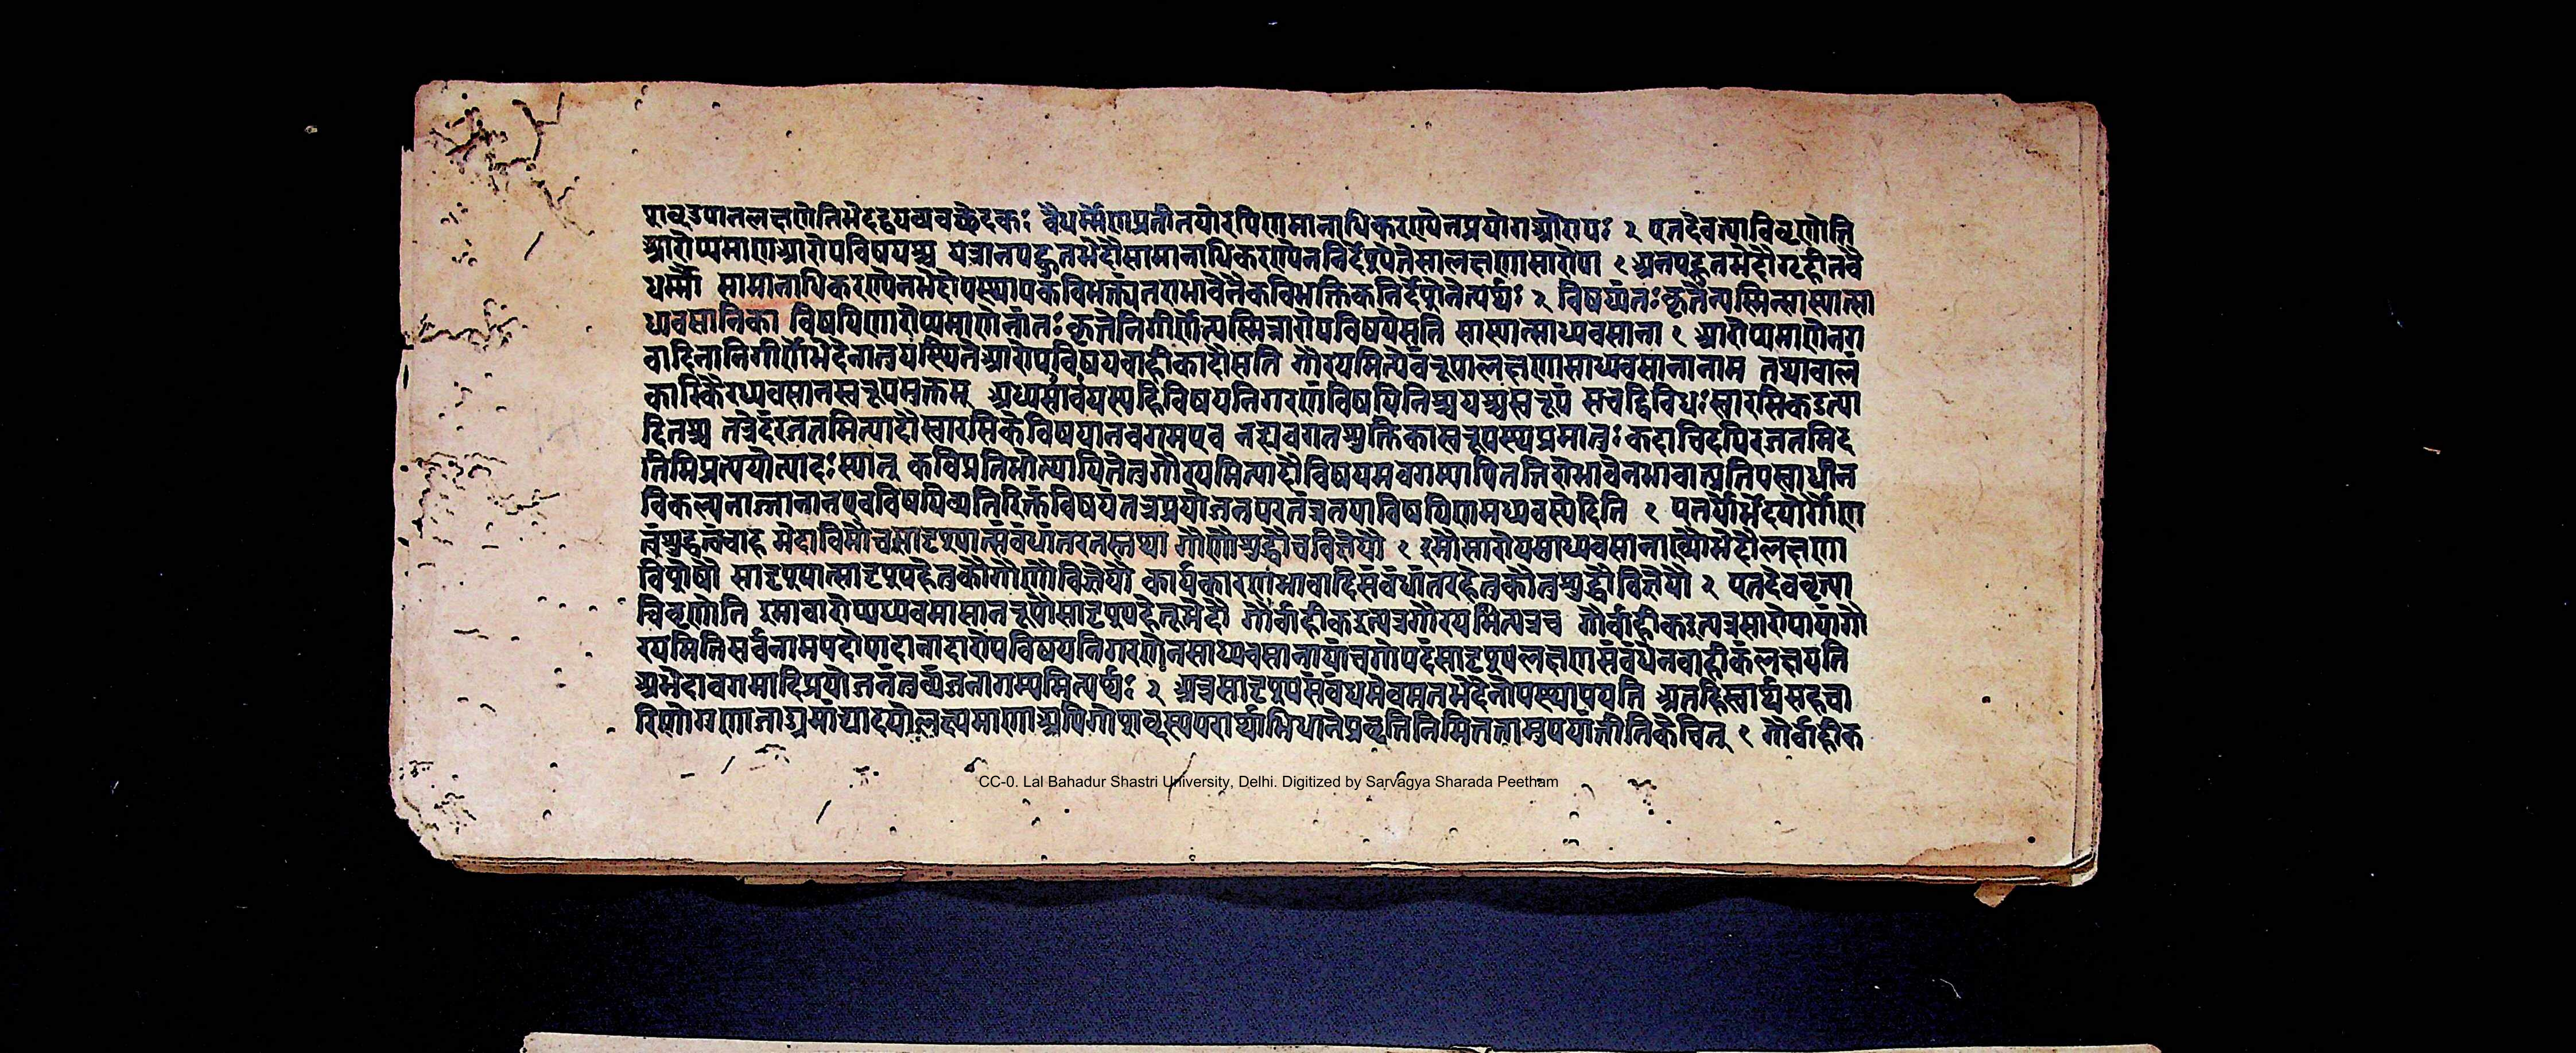 शवउपातलक्षणेतिभेदद्वयव्यवछेदकः वैधर्म्मेणप्रतीतयोरपिणमानाधिकरण्येनप्रयोगआरोपः २ एतदेवत्याविवृणोति
आरोप्यमाणआरोपविषयश्च यत्रानपह्नुतभेदौसामानाधिकरण्येननिर्दिश्येतेसालक्षणासारोपा १ अनपह्नुतभेदौगृहीतवै
धर्म्मौ सामानाधिकरण्येनभेदोपस्थापकविभक्त्यंतराभावेनैकविभक्तिकनिर्देशेनेत्यर्थः २ विषय्यंतःकृतेन्यस्मिन्सास्यात्सा
ध्यवसानिका विषयिणारोप्यमाणेनांतःकृतेनिगीर्णेन्यस्मिन्नारोपविषयेसति सास्यात्साध्यवसाना १ आरोप्यमाणेनग
वादिनानिगीर्णेभेदेनानुपस्थितेआरोपविषयवाहीकादौसति गौरयमित्येवंरूपालक्षणासाध्यवसानानाम तथाचालं
कारिकैरध्यवसानस्वरूपमुक्तम् अध्यसावेयस्यहिविषयनिगरणंविषयिनिश्चयश्चस्वरूपं सचद्विविधःस्वारसिकउत्पा
दितश्च तत्रेदंरजतमित्यादौस्वारसिकेविषयानवगमएव नह्यवगतशुक्तिकास्वरूपस्यप्रमातुः कदाचिदपिरजतमिद
तिमिप्रत्ययोत्पादःस्यात् कविप्रतिभोत्थापितेतुगौरयमित्यादौविषयमवगम्यापितन्निरोभावेनभावात्प्रतिपत्साधीन
विकल्पनाज्ज्ञानानएवविषयिव्यतिरिक्तंविषयंतत्रप्रयोजनपरतंत्रतयाविषयिणमध्यवस्येदिति १ एतयोर्भेदयोर्गौण
तंशुद्धत्वंचाह भेदाविमौचसादृश्यात्संबंधांतरतस्तथा गौणौशुद्धौचविज्ञेयौ १ इमौसारोपसाध्यवसानाख्यौभेदौलक्षणा
विशेषौ सादृश्यात्सादृश्यहेतुकौगौणौविज्ञेयौ कार्यकारणभावादिसंबंधांतरहेतुकौतुशुद्धौविज्ञेयौ २ एतदेववृत्त्या
विवृणोति इमावारोपाध्यवसासानरूपौसादृश्यहेतूभेदौ गौर्वाहीकइत्यत्रगौरयमित्यत्रच गौर्वाहीकइत्यत्रसारोपायांगौ
रयमितिसर्वनामपदोपादानादारोपविषयनिगरणेनसाध्यवसानायांचगोपदंसादृश्यलक्षणसंबंधेनवाहीकंलक्षयति
अभेदावगमादिप्रयोजनंतुव्यंजनागम्यमित्यर्थः २ अत्रसादृश्यसंबंधमेवमतभेदेनोपस्थापयति अत्रहिस्वार्थसहचा
रिणोगुणोजाड्यमांद्यादयोलक्ष्यमाणाअपिगोशब्दस्यपरार्थाभिधानेप्रवृत्तिनिमित्ततामुपयांतीतिकेचित् १ गौर्वाहीक
CC-0. Lal Bahadur Shastri University, Delhi. Digitized by Sarvagya Sharada Peetham